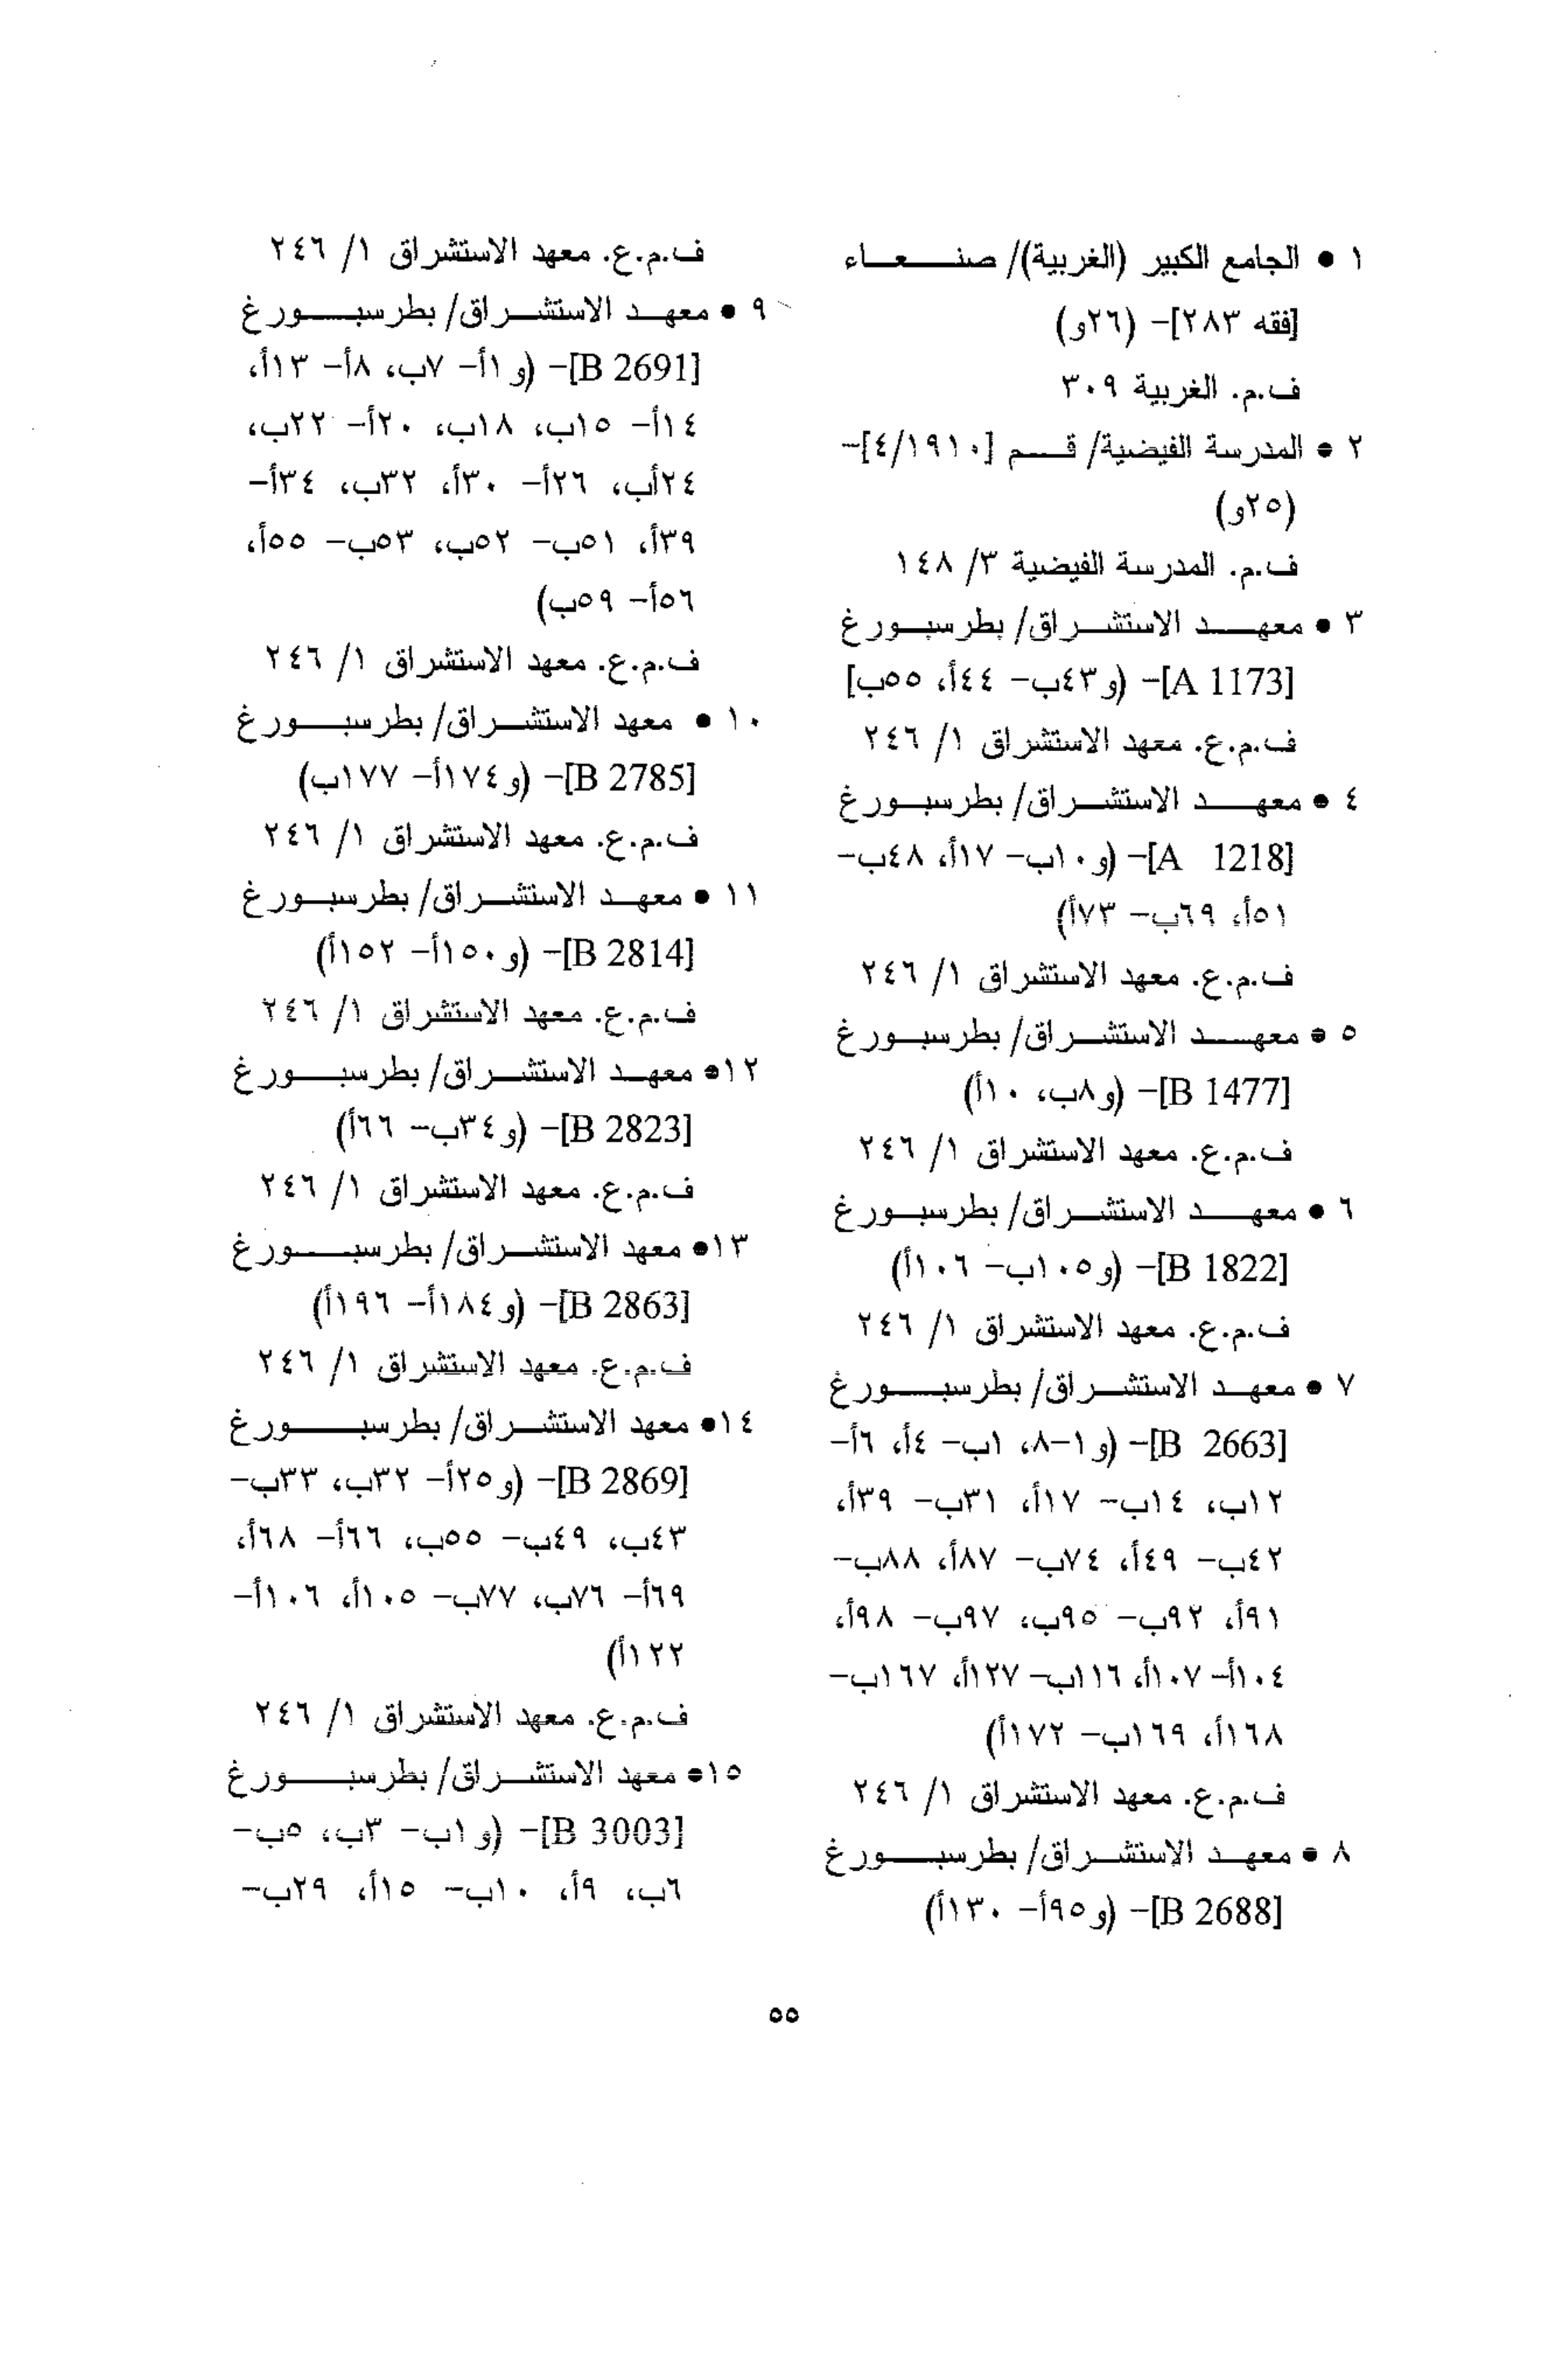 ١ • الجامع الكبير (الغربية)/ صنعاء
[فقه ٢٨٣]- (٢٦و)
ف.م. الغربية ٣٠٩
٢ • المدرسة الفيضية/ قم [٤/١٩١٠]-
(٢٥و)
ف.م. المدرسة الفيضية ٣/ ١٤٨
٣ • معهد الاستشراق/ بطرسبورغ
[A 1173]- (و٤٣ب- ٤٤أ، ٥٥ب]
ف.م.ع. معهد الاستشراق ١/ ٢٤٦
٤ • معهد الاستشراق/ بطرسبورغ
[A 1218]- (و١٠ب- ١٧أ، ٤٨ب-
٥١أ، ٦٩ب- ٧٣أ)
ف.م.ع. معهد الاستشراق ١/ ٢٤٦
٥ • معهد الاستشراق/ بطرسبورغ
[B 1477]- (و٨ب، ١٠أ)
ف.م.ع. معهد الاستشراق ١/ ٢٤٦
٦ • معهد الاستشراق/ بطرسبورغ
[B 1822]- (و١٠٥ب- ١٠٦أ)
ف.م.ع. معهد الاستشراق ١/ ٢٤٦
٧ • معهد الاستشراق/ بطرسبورغ
[B 2663]- (و١-٨، ١ب- ٤أ، ٦أ-
١٢ب، ١٤ب- ١٧أ، ٣١ب- ٣٩أ،
٤٢ب- ٤٩أ، ٧٤ب- ٨٧أ، ٨٨ب-
٩١أ، ٩٢ب- ٩٥ب، ٩٧ب- ٩٨أ،
١٠٤أ- ١٠٧أ، ١١٦ب- ١٢٧أ، ١٦٧ب-
١٦٨أ، ١٦٩ب- ١٧٢أ)
ف.م.ع. معهد الاستشراق ١/ ٢٤٦
٨ • معهد الاستشراق/ بطرسبورغ
[B 2688]- (و٩٥أ- ١٣٠أ)
ف.م.ع. معهد الاستشراق ١/ ٢٤٦
٩ • معهد الاستشراق/ بطرسبورغ
[B 2691]- (و١أ- ٧ب، ٨أ- ١٣أ،
١٤أ- ١٥ب، ١٨ب، ٢٠أ- ٢٢ب،
٢٤أب، ٢٦أ- ٣٠أ، ٣٢ب، ٣٤أ-
٣٩أ، ٥١ب- ٥٢ب، ٥٣ب- ٥٥أ،
٥٦أ- ٥٩ب)
ف.م.ع. معهد الاستشراق ١/ ٢٤٦
١٠ • معهد الاستشراق/ بطرسبورغ
[B 2785]- (و١٧٤أ- ١٧٧ب)
ف.م.ع. معهد الاستشراق ١/ ٢٤٦
١١ • معهد الاستشراق/ بطرسبورغ
[B 2814]- (و١٥٠أ- ١٥٢أ)
ف.م.ع. معهد الاستشراق ١/ ٢٤٦
١٢• معهد الاستشراق/ بطرسبورغ
[B 2823]- (و٣٤ب- ٦٦أ)
ف.م.ع. معهد الاستشراق ١/ ٢٤٦
١٣• معهد الاستشراق/ بطرسبورغ
[B 2863]- (و١٨٤أ- ١٩٦أ)
ف.م.ع. معهد الاستشراق ١/ ٢٤٦
١٤• معهد الاستشراق/ بطرسبورغ
[B 2869]- (و٢٥أ- ٣٢ب، ٣٣ب-
٤٣ب، ٤٩ب- ٥٥ب، ٦٦أ- ٦٨أ،
٦٩أ- ٧٦ب، ٧٧ب- ١٠٥أ، ١٠٦أ-
١٢٢أ)
ف.م.ع. معهد الاستشراق ١/ ٢٤٦
١٥• معهد الاستشراق/ بطرسبورغ
[B 3003]- (و١ب- ٣ب، ٥ب-
٦ب، ٩أ، ١٠ب- ١٥أ، ٢٩ب-
٥٥